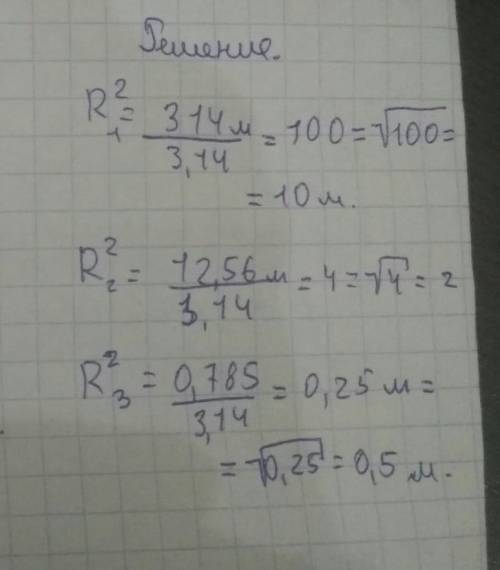 Решение.
R₁² = 314 м / 3,14 = 100 = √100 =
= 10 м.
R₂² = 12,56 м / 3,14 = 4 = √4 = 2
R₃² = 0,785 / 3,14 = 0,25 м =
= √0,25 = 0,5 м.